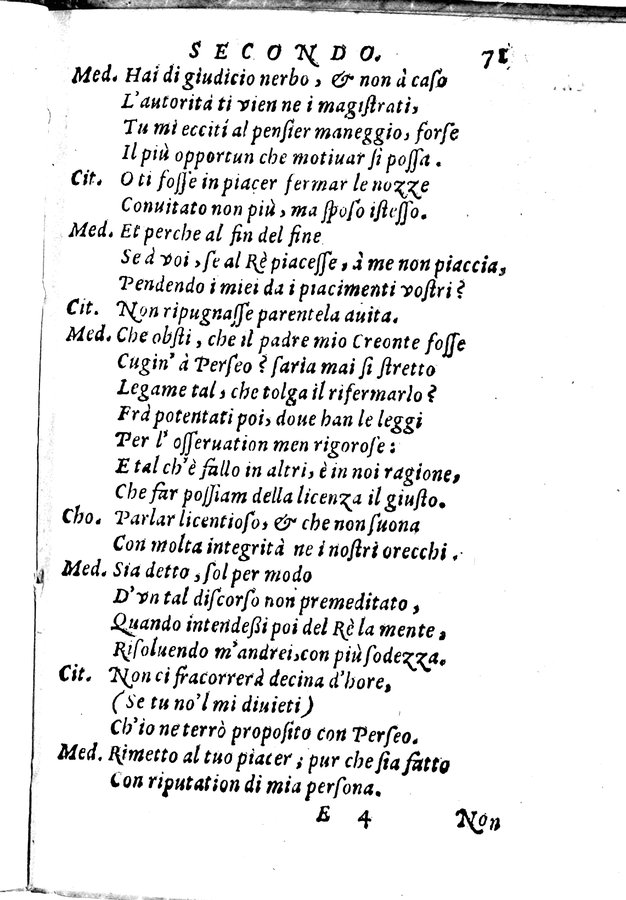 SECONDO. 71
Med. Hai di giudicio nerbo, & non à caso
L'autorità ti vien ne i magistrati,
Tu mi ecciti al pensier maneggio, forse
Il più opportun che motiuar si possa.
Cit. O ti fosse in piacer fermar le nozze
Conuitato non più, ma sposo istesso.
Med. Et perche al fin del fine
Se à voi, se al Rè piacesse, à me non piaccia,
Pendendo i miei da i piacimenti vostri?
Cit. Non ripugnasse parentela auita.
Med. Che obsti, che il padre mio Creonte fosse
Cugin' à Perseo? saria mai si stretto
Legame tal, che tolga il rifermarlo?
Frà potentati poi, doue han le leggi
Per l'osseruation men rigorose:
E tal ch'è fallo in altri, è in noi ragione,
Che far possiam della licenza il giusto.
Cho. Parlar licentioso, & che non suona
Con molta integrità ne i nostri orecchi.
Med. Sia detto, sol per modo
D'vn tal discorso non premeditato,
Quando intendeßi poi del Rè la mente,
Risoluendo m'andrei, con più sodezza.
Cit. Non ci fracorrerà decina d'hore,
(Se tu no'l mi diuieti)
Ch'io ne terrò proposito con Perseo.
Med. Rimetto al tuo piacer; pur che sia fatto
Con riputation di mia persona.
E 4 Non